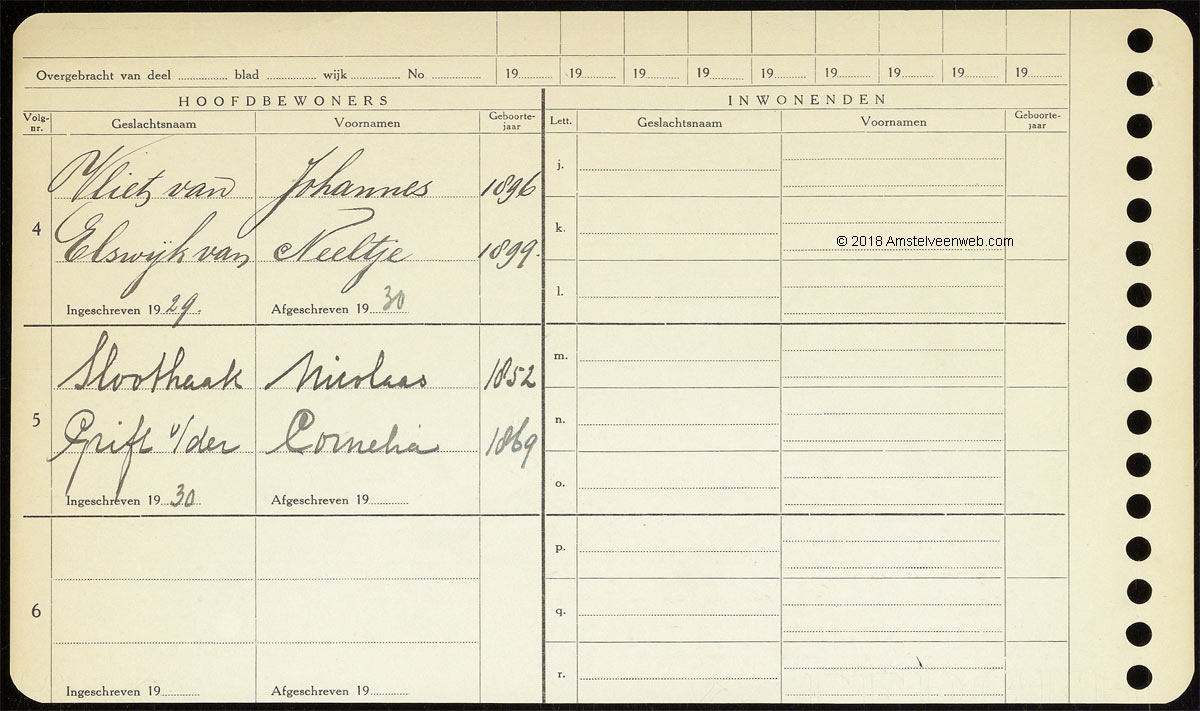 Overgebracht van deel ........ blad ........ wijk ........ No ........ 19 ..... 19 ..... 19 ..... 19 ..... 19 ..... 19 ..... 19 ..... 19 ..... 19 .....
HOOFDBEWONERS
INWONENDEN
Volg-nr. Geslachtsnaam Voornamen Geboorte-jaar
Lett. Geslachtsnaam Voornamen Geboorte-jaar
Vliet van Johannes 1896
4
Elswijk van Neeltje 1899.
Ingeschreven 1929. Afgeschreven 1930
Sloothaak Nicolaas 1852
5
Grift v/der Cornelia 1869
Ingeschreven 1930 Afgeschreven 19
6
Ingeschreven 19 Afgeschreven 19
j.
k.
© 2018 Amstelveenweb.com
l.
m.
n.
o.
p.
q.
r.